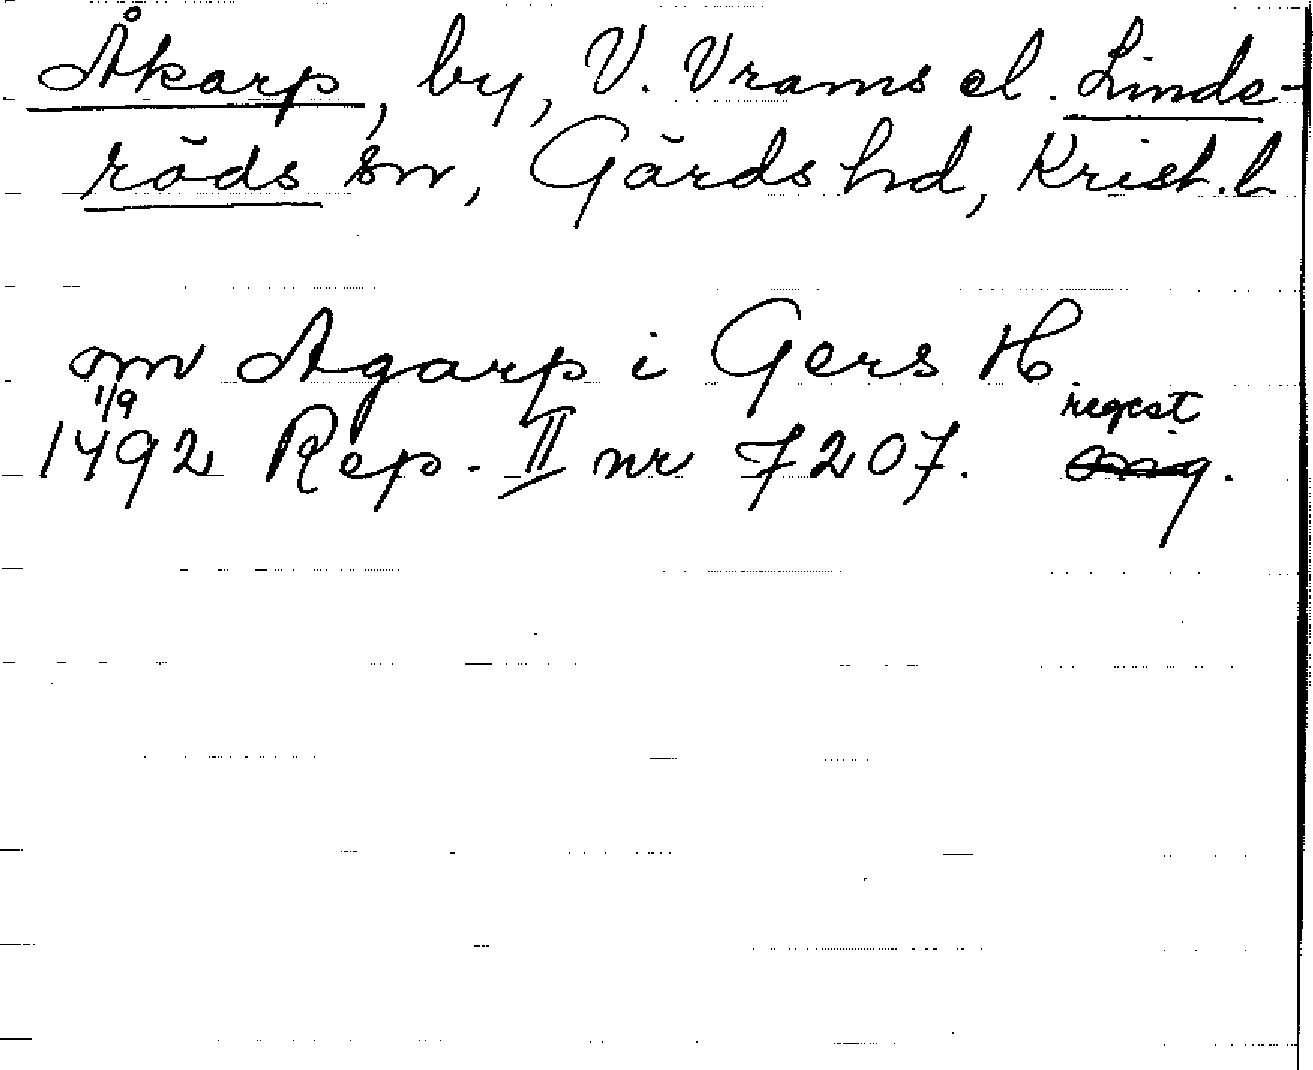 Åkarp, by, V. Vrams el. Linde-
röds sn, Gärds hd, Krist. l
om Agarp i Gers H
1/9 regest
1492 Rep. II nr 7207.